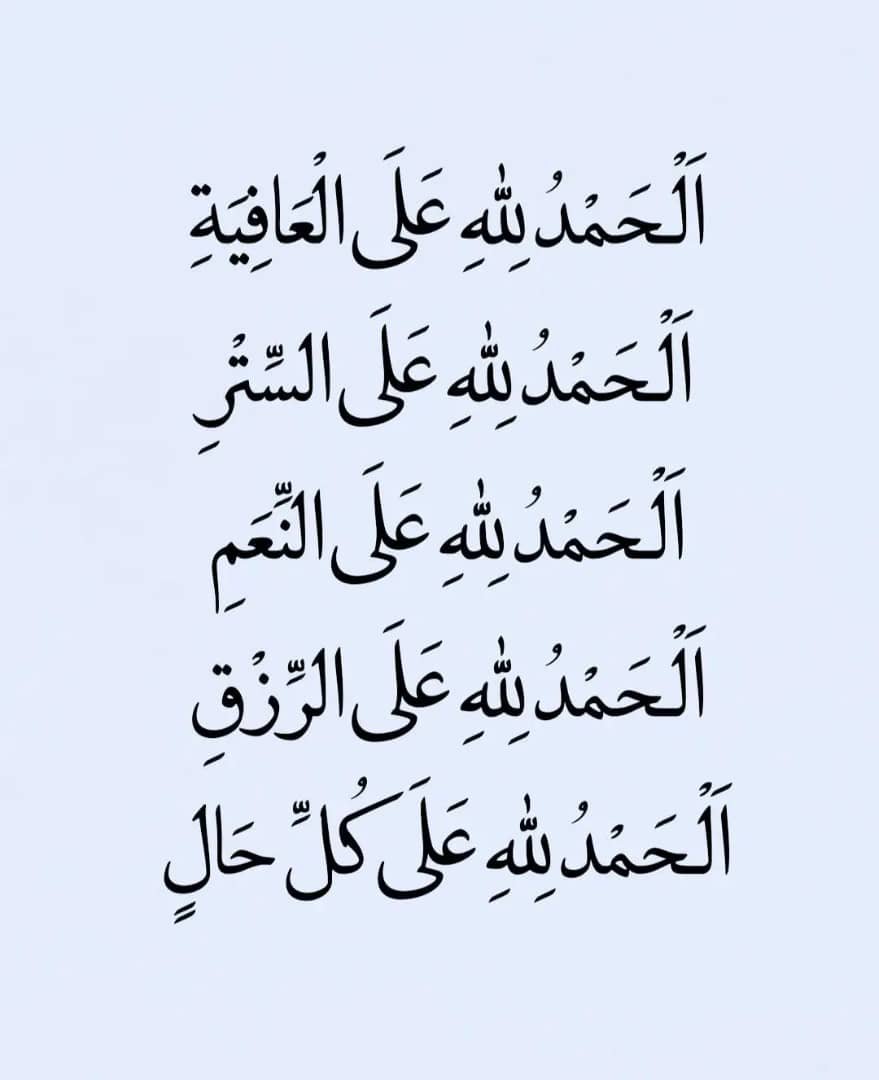 اَلْحَمْدُ لِلّٰهِ عَلَى الْعَافِيَةِ
اَلْحَمْدُ لِلّٰهِ عَلَى السِّتْرِ
اَلْحَمْدُ لِلّٰهِ عَلَى النِّعَمِ
اَلْحَمْدُ لِلّٰهِ عَلَى الرِّزْقِ
اَلْحَمْدُ لِلّٰهِ عَلَى كُلِّ حَالٍ